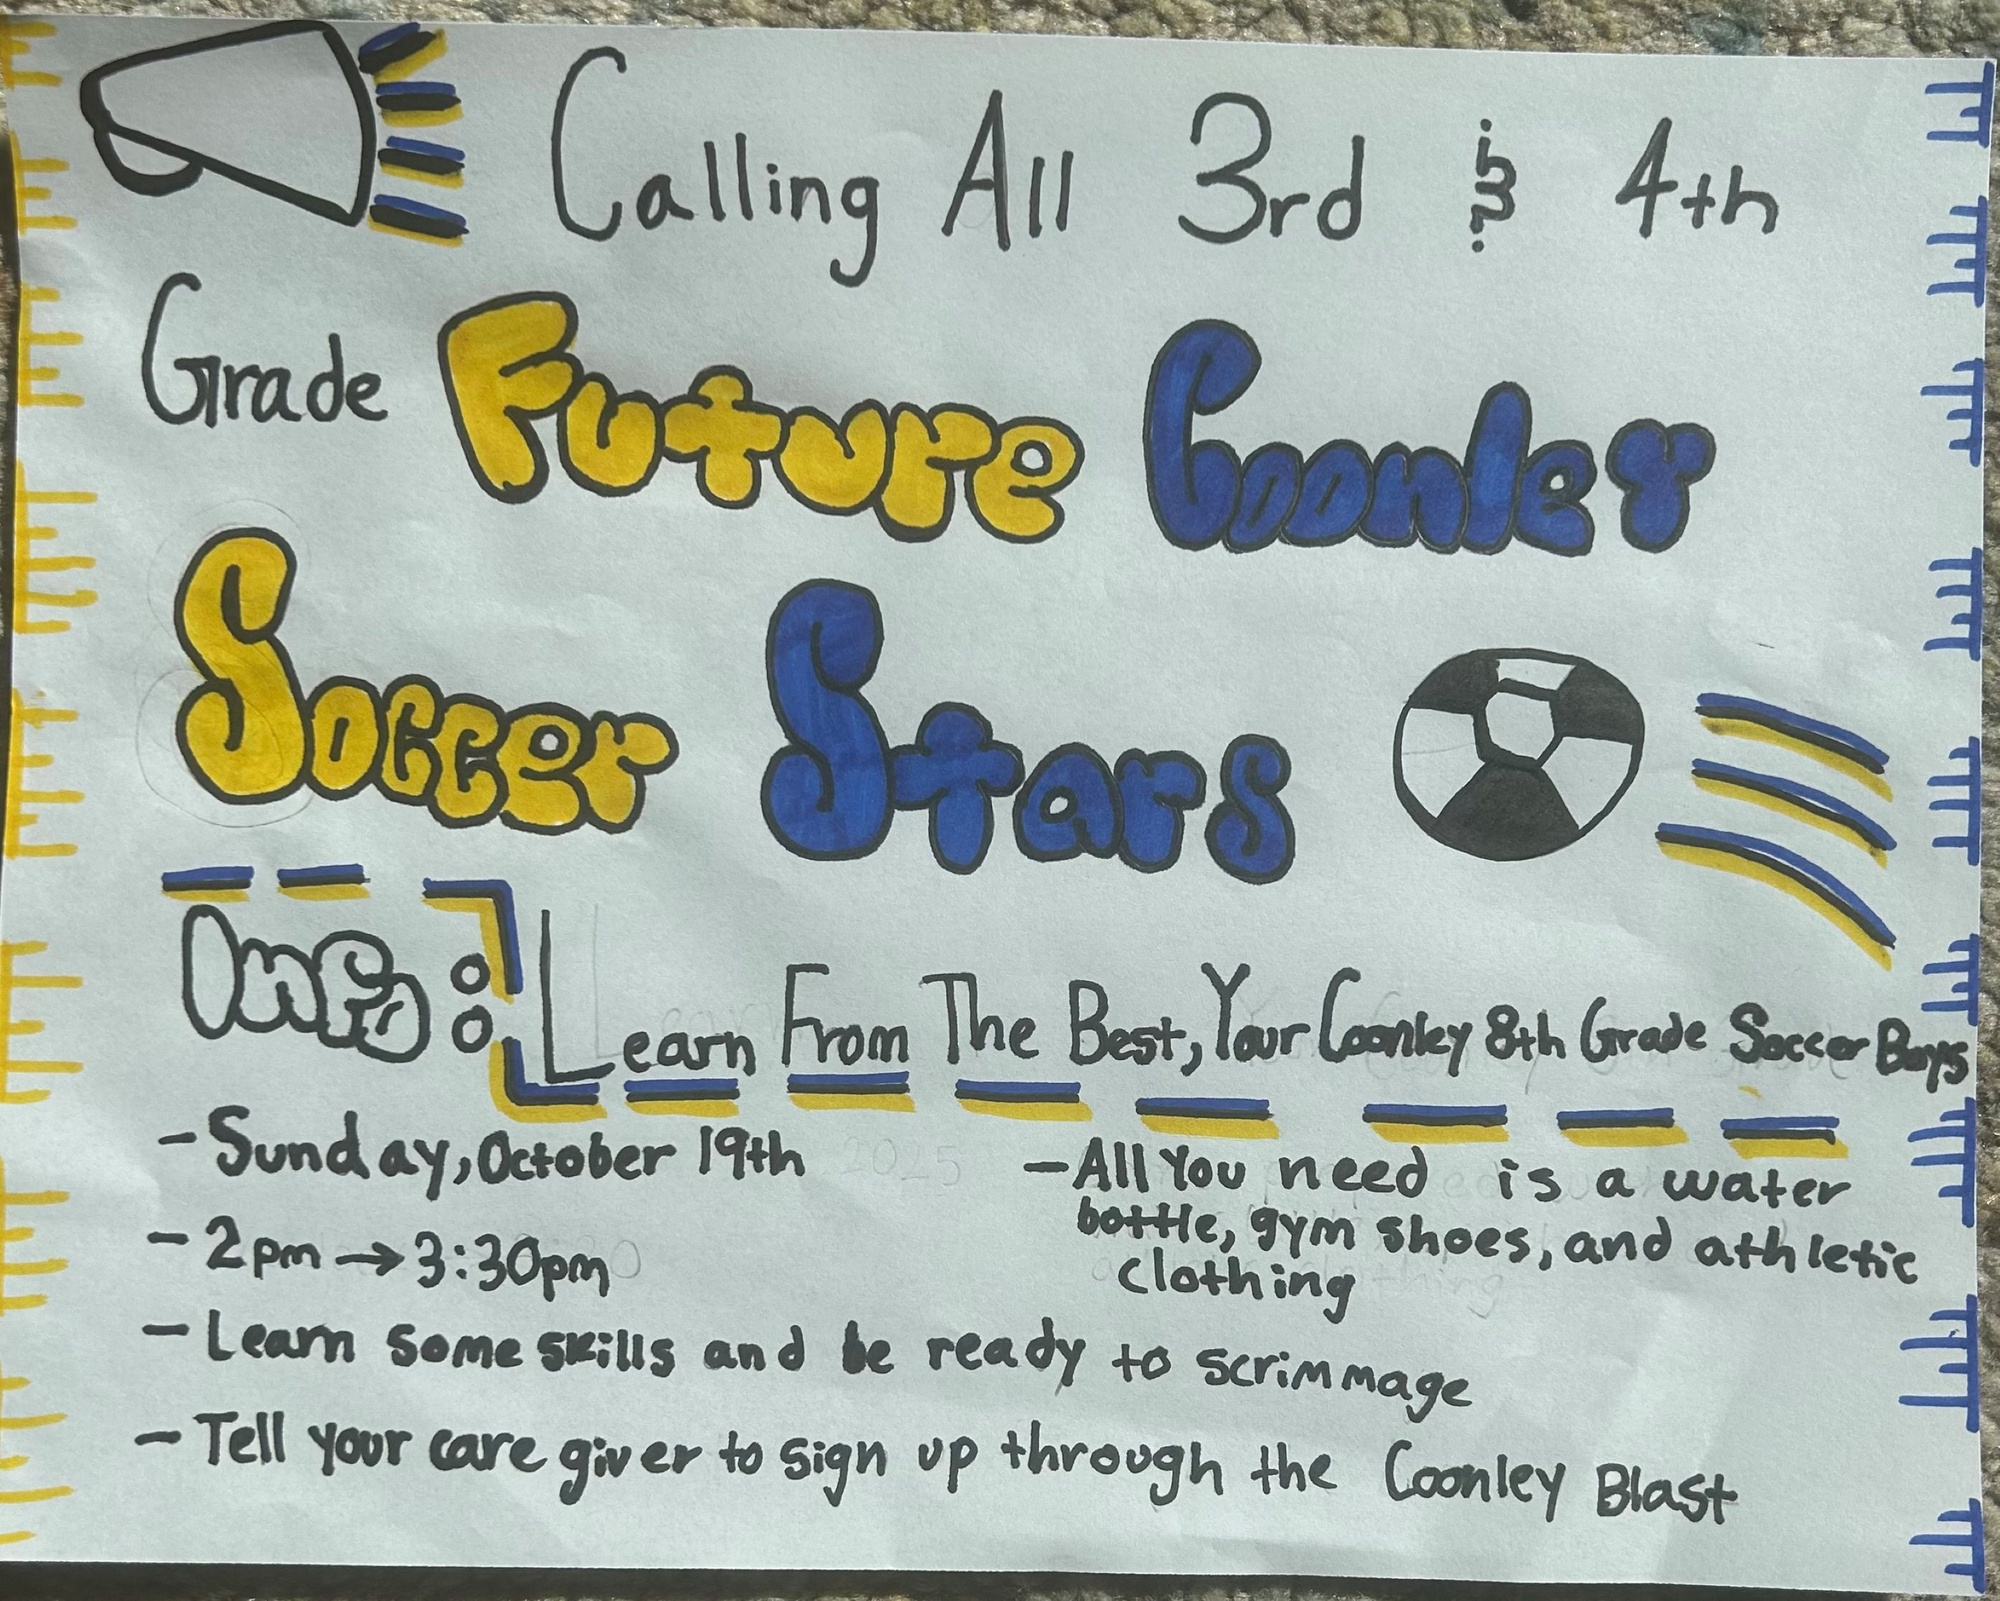 Calling All 3rd & 4th
Grade Future Coonley
Soccer Stars
Info: Learn From The Best, Your Coonley 8th Grade Soccer Boys
- Sunday, October 19th
- 2pm → 3:30pm
- All You need is a water
bottle, gym shoes, and athletic
clothing
- Learn some skills and be ready to scrimmage
- Tell your care giver to sign up through the Coonley Blast